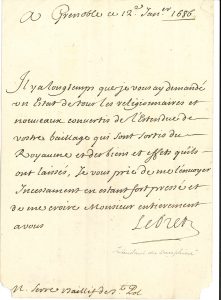 A Grenoble ce 12e Janer 1686
Il y a longtemps que je vous ay demandé
un Estat de tous les religionnaires et
nouveaux convertis de l'Estendue de
vostre bailliage qui sont sortis du
Royaume et des biens et effets qu'ils
ont laissés, Je vous prie de me l'envoyer
Incessament en estant fort pressé et
de me croire Monsieur entierement
a vous
LeBret
M. Serre Baillif de St Pol